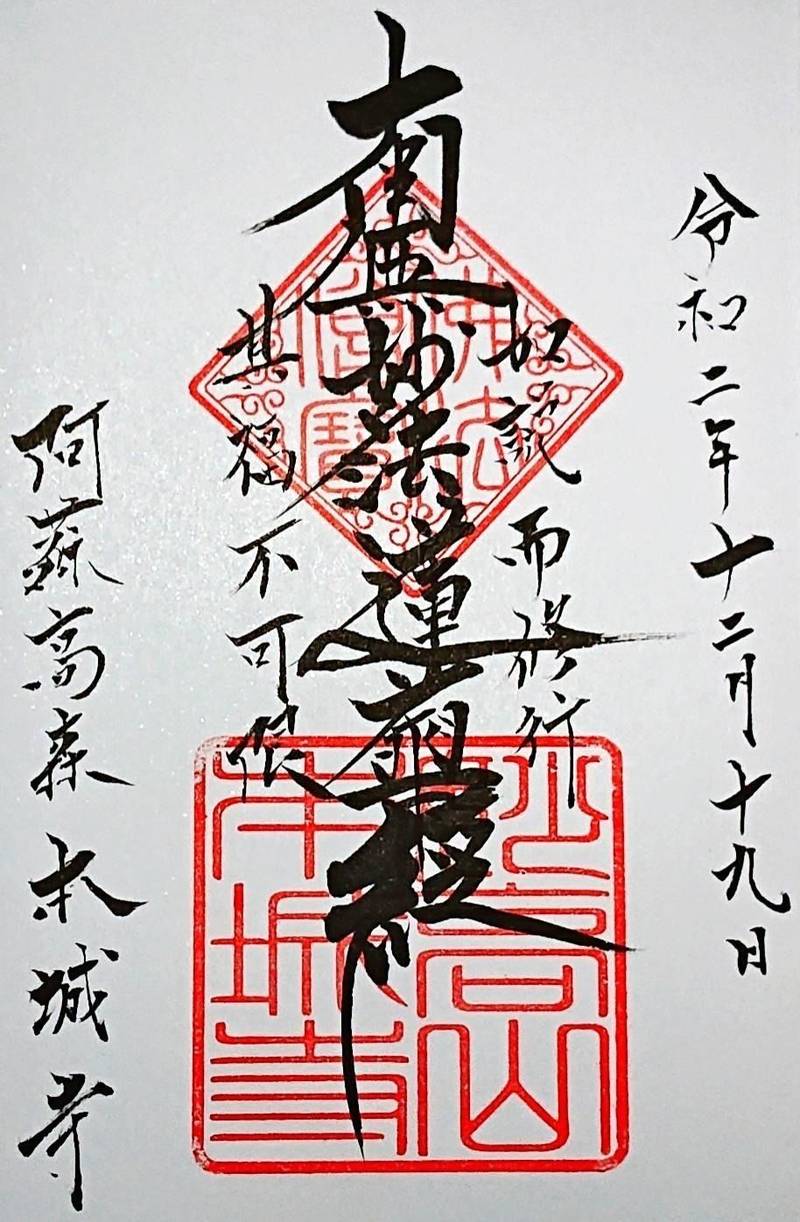 令和二年十二月十九日
如説而修行
南無妙法蓮華経
其福不可限
阿蘇高森 本城寺
佛法
僧寳
高山
本城寺